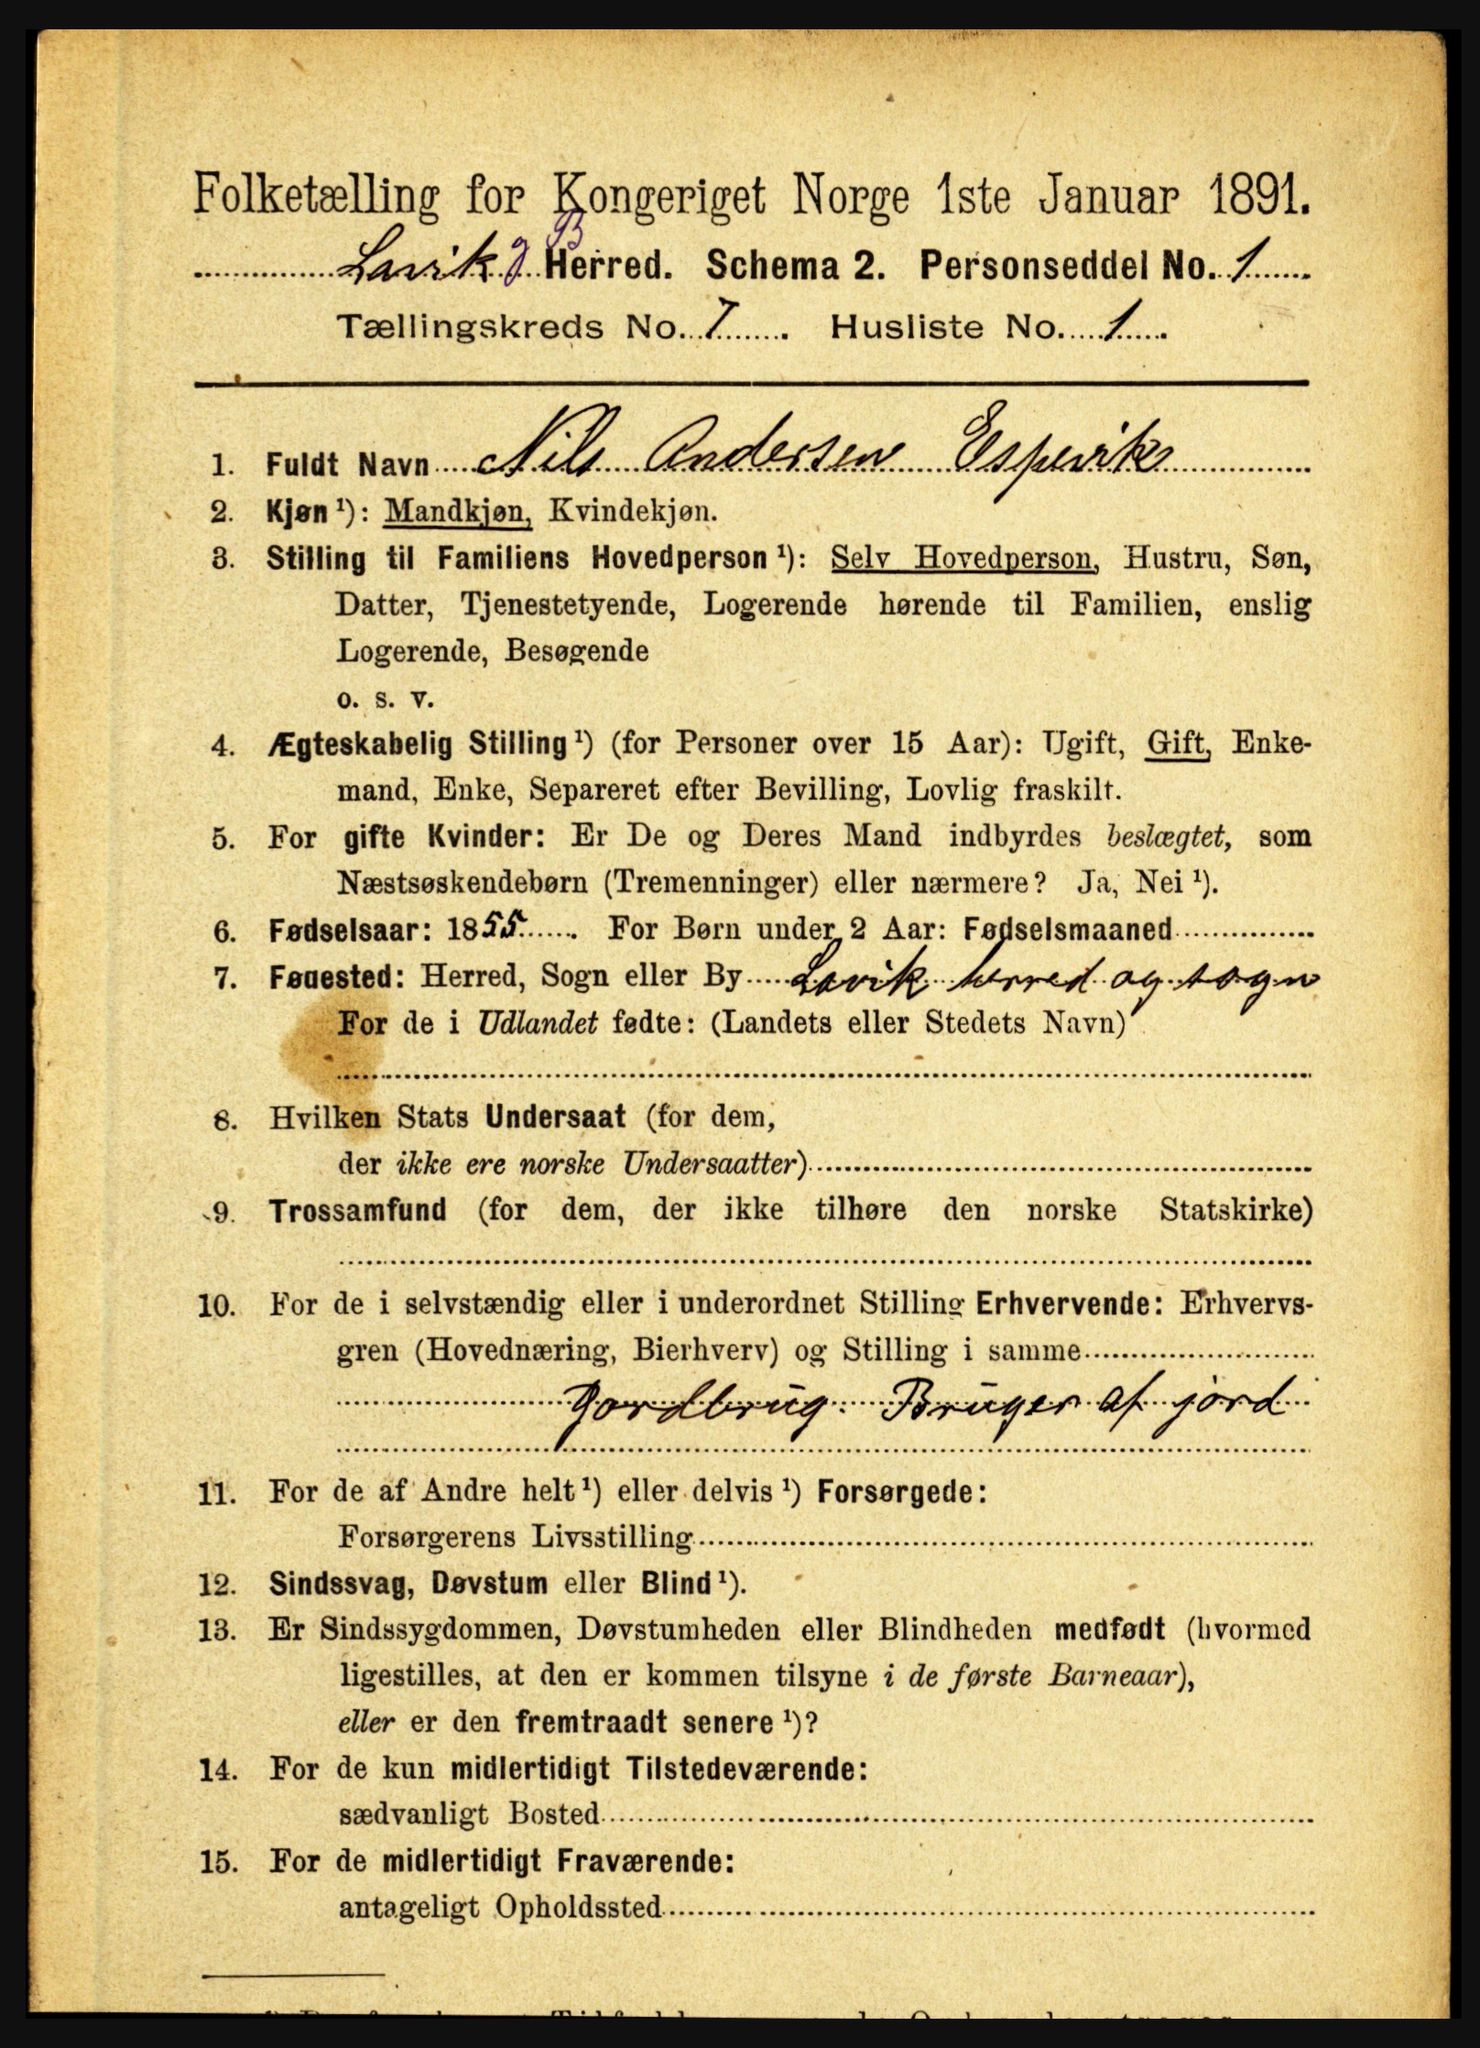 Folketælling for Kongeriget Norge 1ste Januar 1891.
Lavik Herred. Schema 2. Personseddel No. 1
Tællingskreds No. 7. Husliste No. 1.
1. Fuldt Navn Nils Andersen Espevik
2. Kjøn ¹): Mandkjøn, Kvindekjøn.
3. Stilling til Familiens Hovedperson ¹): Selv Hovedperson, Hustru, Søn,
Datter, Tjenestetyende, Logerende hørende til Familien, enslig
Logerende, Besøgende
o. s. v.
4. Ægteskabelig Stilling ¹) (for Personer over 15 Aar): Ugift, Gift, Enke-
mand, Enke, Separeret efter Bevilling, Lovlig fraskilt.
5. For gifte Kvinder: Er De og Deres Mand indbyrdes beslægtet, som
Næstsøskendebørn (Tremenninger) eller nærmere? Ja, Nei ¹).
6. Fødselsaar: 1855. For Børn under 2 Aar: Fødselsmaaned
7. Fødested: Herred, Sogn eller By Lavik herred og sogn
For de i Udlandet fødte: (Landets eller Stedets Navn)
8. Hvilken Stats Undersaat (for dem,
der ikke ere norske Undersaatter)
9. Trossamfund (for dem, der ikke tilhøre den norske Statskirke)
10. For de i selvstændig eller i underordnet Stilling Erhvervende: Erhvervs-
gren (Hovednæring, Bierhverv) og Stilling i samme
Jordbrug. Bruger af jord
11. For de af Andre helt ¹) eller delvis ¹) Forsørgede:
Forsørgerens Livsstilling
12. Sindssvag, Døvstum eller Blind ¹).
13. Er Sindssygdommen, Døvstumheden eller Blindheden medfødt (hvormed
ligestilles, at den er kommen tilsyne i de første Barneaar),
eller er den fremtraadt senere ¹)?
14. For de kun midlertidigt Tilstedeværende:
sædvanligt Bosted
15. For de midlertidigt Fraværende:
antageligt Opholdssted